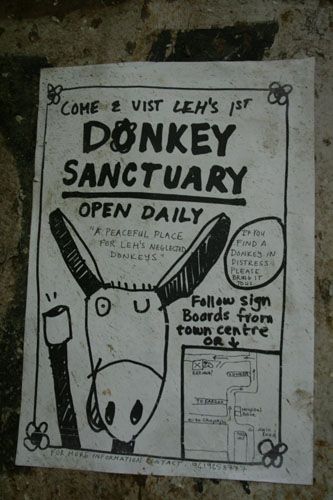 COME & VIST LEH'S 1ST
DONKEY
SANCTUARY
OPEN DAILY
"A PEACEFUL PLACE
FOR LEH'S NEGLECTED
DONKEYS"
IF YOU
FIND A
DONKEY IN
DISTRESS
PLEASE
BRING IT
TO US
Follow sign
Boards from
town centre
OR ↓
FOR MORE INFORMATION CONTACT